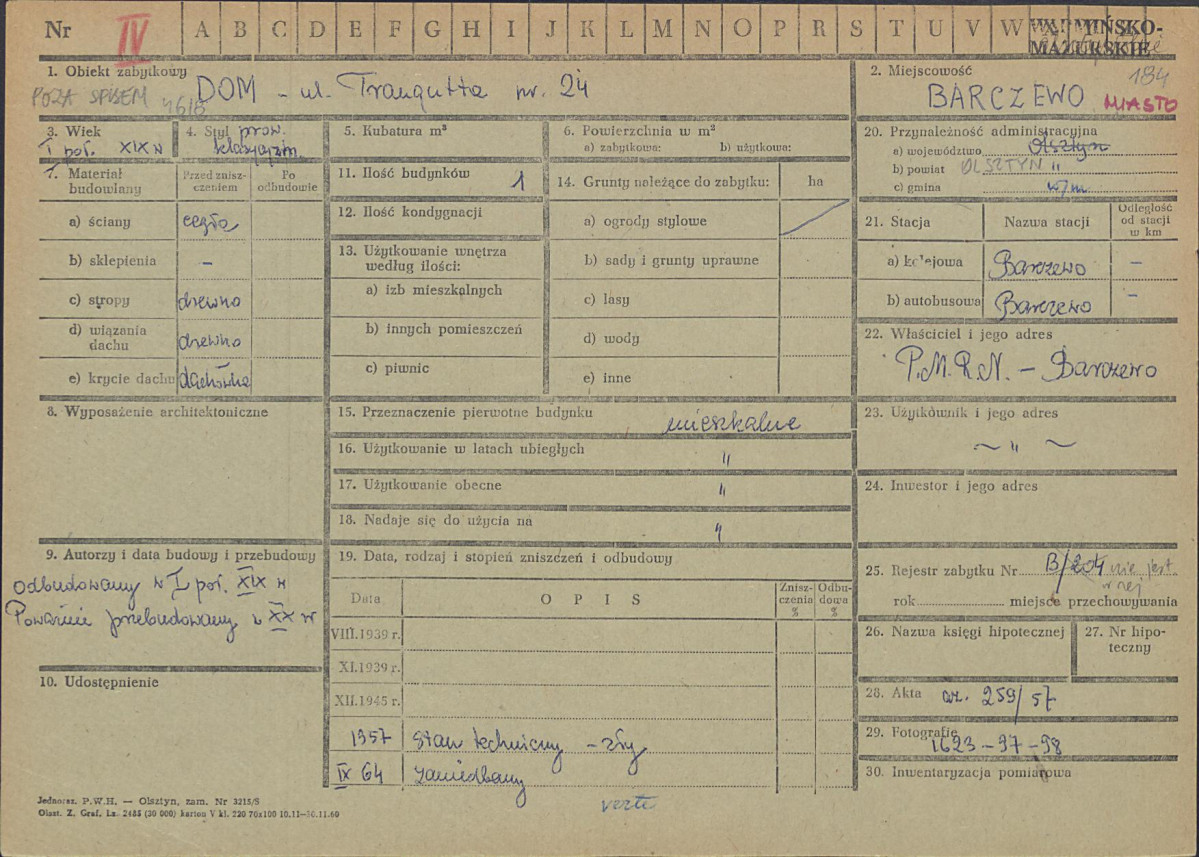 Nr IV A B C D E F G H I J K L M N O P R S T U V W X WARMIŃSKO-
MAZURSKIE
184
1. Obiekt zabytkowy
POZA SPISEM 4618 DOM - ul. Traugutta nr. 24
2. Miejscowość
BARCZEWO MIASTO
3. Wiek
I poł. XIX w
4. Styl prow.
klasycyzm.
5. Kubatura m³
6. Powierzchnia w m²
a) zabytkowa: b) użytkowa:
7. Materiał budowlany
Przed zniszczeniem
Po odbudowie
a) ściany cegła
b) sklepienia –
c) stropy drewno
d) wiązania dachu drewno
e) krycie dachu dachówka
11. Ilość budynków 1
12. Ilość kondygnacji
13. Użytkowanie wnętrza
według ilości:
a) izb mieszkalnych
b) innych pomieszczeń
c) piwnic
14. Grunty należące do zabytku: ha
a) ogrody stylowe
b) sady i grunty uprawne
c) lasy
d) wody
e) inne
20. Przynależność administracyjna
a) województwo Olsztyn
b) powiat OLSZTYN "
c) gmina w/m
21. Stacja
Nazwa stacji
Odległość
od stacji
w km
a) kolejowa Barczewo –
b) autobusowa Barczewo –
22. Właściciel i jego adres
P.M.R.N. – Barczewo
8. Wyposażenie architektoniczne
15. Przeznaczenie pierwotne budynku
mieszkalne
16. Użytkowanie w latach ubiegłych "
17. Użytkowanie obecne "
18. Nadaje się do użycia na "
23. Użytkownik i jego adres
~ " ~
24. Inwestor i jego adres
9. Autorzy i data budowy i przebudowy
odbudowany w I poł. XIX w
Poważnie przebudowany w XX w
10. Udostępnienie
19. Data, rodzaj i stopień zniszczeń i odbudowy
Data
OPIS
Znisz-
czenia
%
Odbu-
dowa
%
VIII.1939 r.
XI.1939 r.
XII.1945 r.
1957 Stan techniczny – zły
IX 64 zaniedbany
verte
25. Rejestr zabytku Nr B/204 nie jest
w rej
rok miejsce przechowywania
26. Nazwa księgi hipotecznej
27. Nr hipo-
teczny
28. Akta nr. 259/57
29. Fotografie
1623-97-98
30. Inwentaryzacja pomiarowa
Jednoraz. P.W.H. — Olsztyn, zam. Nr 3215/S
Olszt. Z. Graf. Lz. 2485 (30 000) karton V kl. 220 70x100 10.11—30.11.60